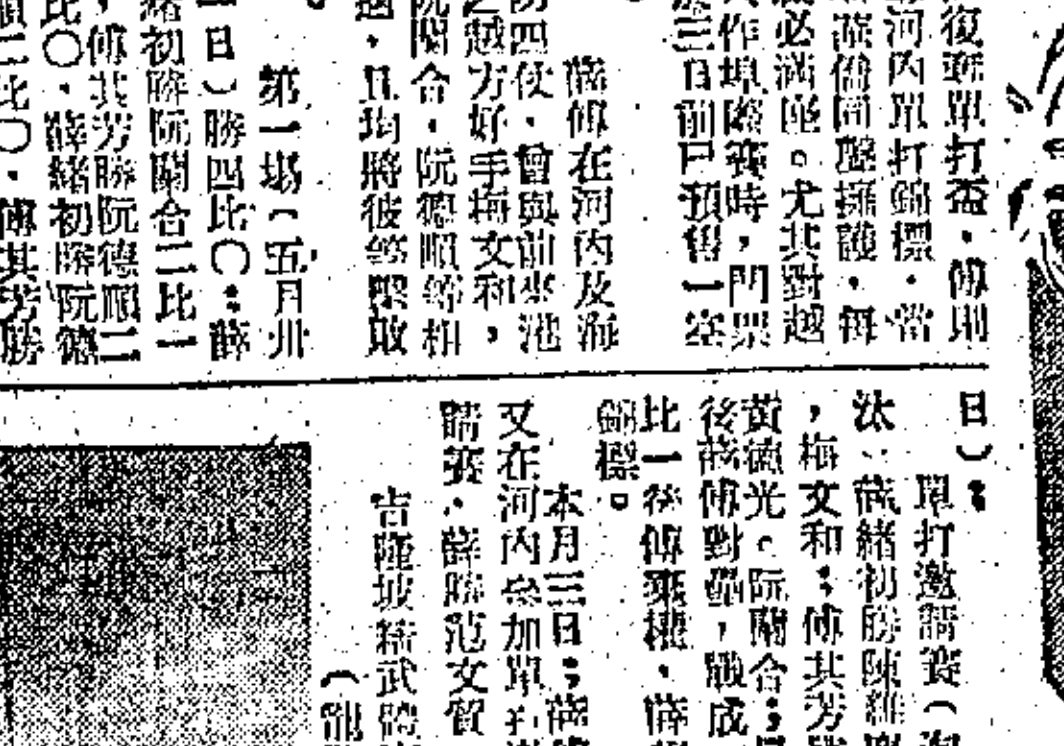 復聯單打盃．傅則
河內單打錦標．當
僑同盤擁護．每
必滿座。尤其對越
作埠際賽時，門票
三日前已預售一空
薛傅在河內及海
防四仗．曾與前來池
之越方好手梅文和，
阮關合．阮德順等相
遇．且均將彼等擊敗
。
第一場（五月卅
一日）勝四比〇：薛
緒初勝阮關合二比一
，傅其芳勝阮德順二
比〇．薛緒初勝阮德
順二比〇．傅其芳勝
日）：
單打邀請賽（海
汰、薛緒初勝陳
，梅文和：傅其芳
黃德光。阮關合：
後薛傅對壘，戰成
比一後傅棄權．薛
錦標。
本月三日：薛
又在河內參加單打
請賽．薛勝范文質
吉隆坡精武體
（